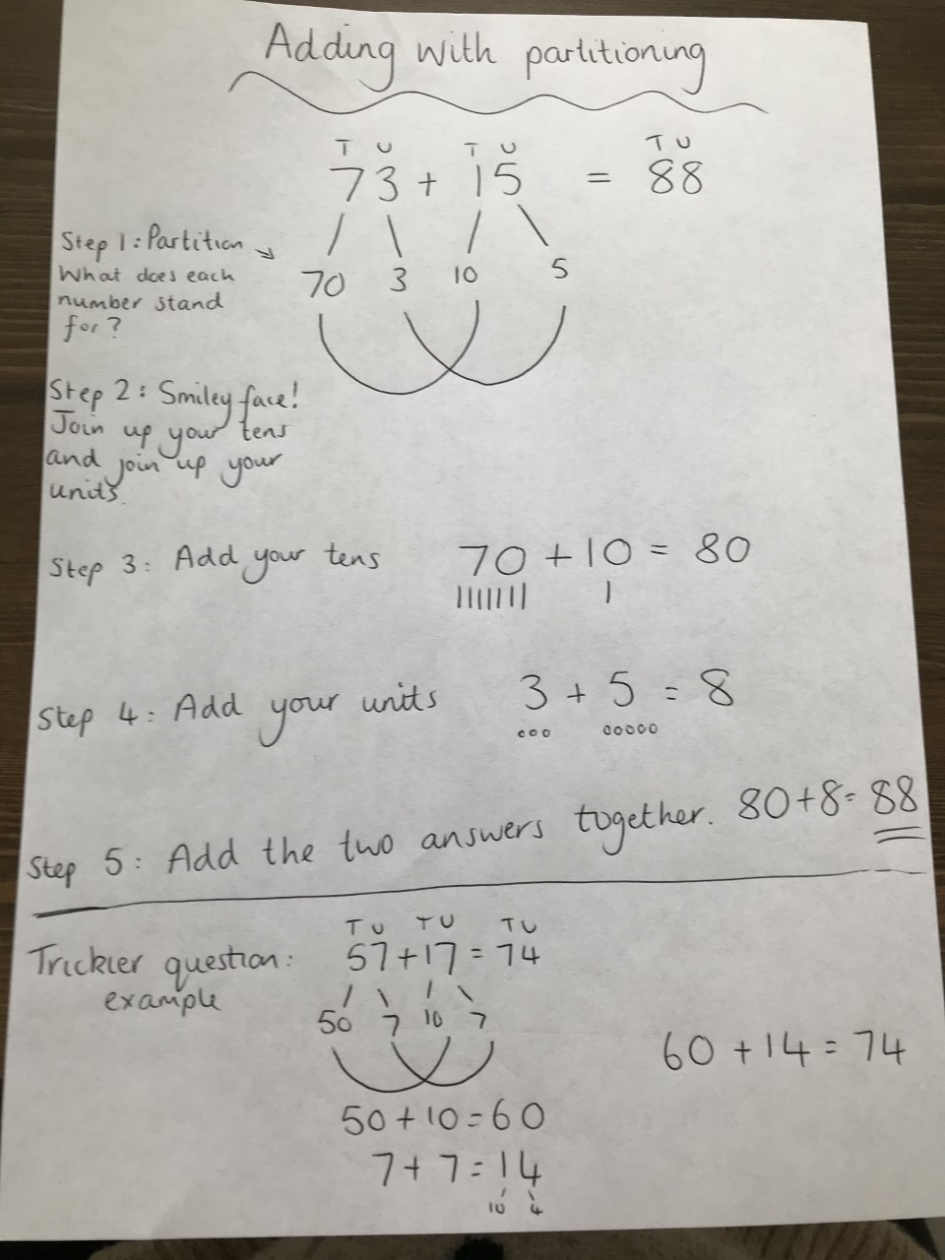 Adding with partitioning
T U T U T U
73 + 15 = 88
Step 1: Partition
What does each
number stand
for?
70 3 10 5
Step 2: Smiley face!
Join up your tens
and join up your
units.
Step 3: Add your tens 70 + 10 = 80
Step 4: Add your units 3 + 5 = 8
Step 5: Add the two answers together. 80+8= 88
T U T U T U
Trickier question: 57+17 = 74
example
50 7 10 7
60 + 14 = 74
50 + 10 = 60
7 + 7 = 14
10 4